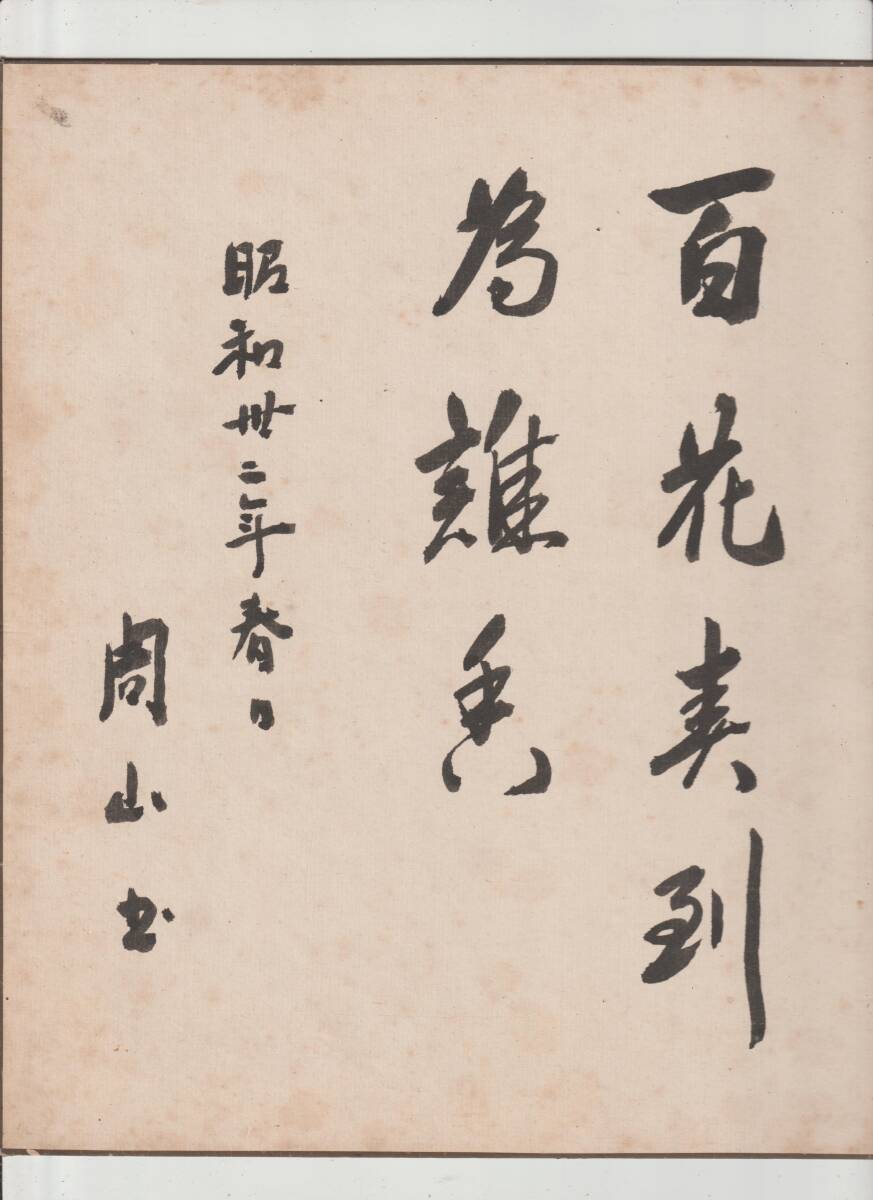 百花春到
為誰香
昭和卅二年春日
周山書